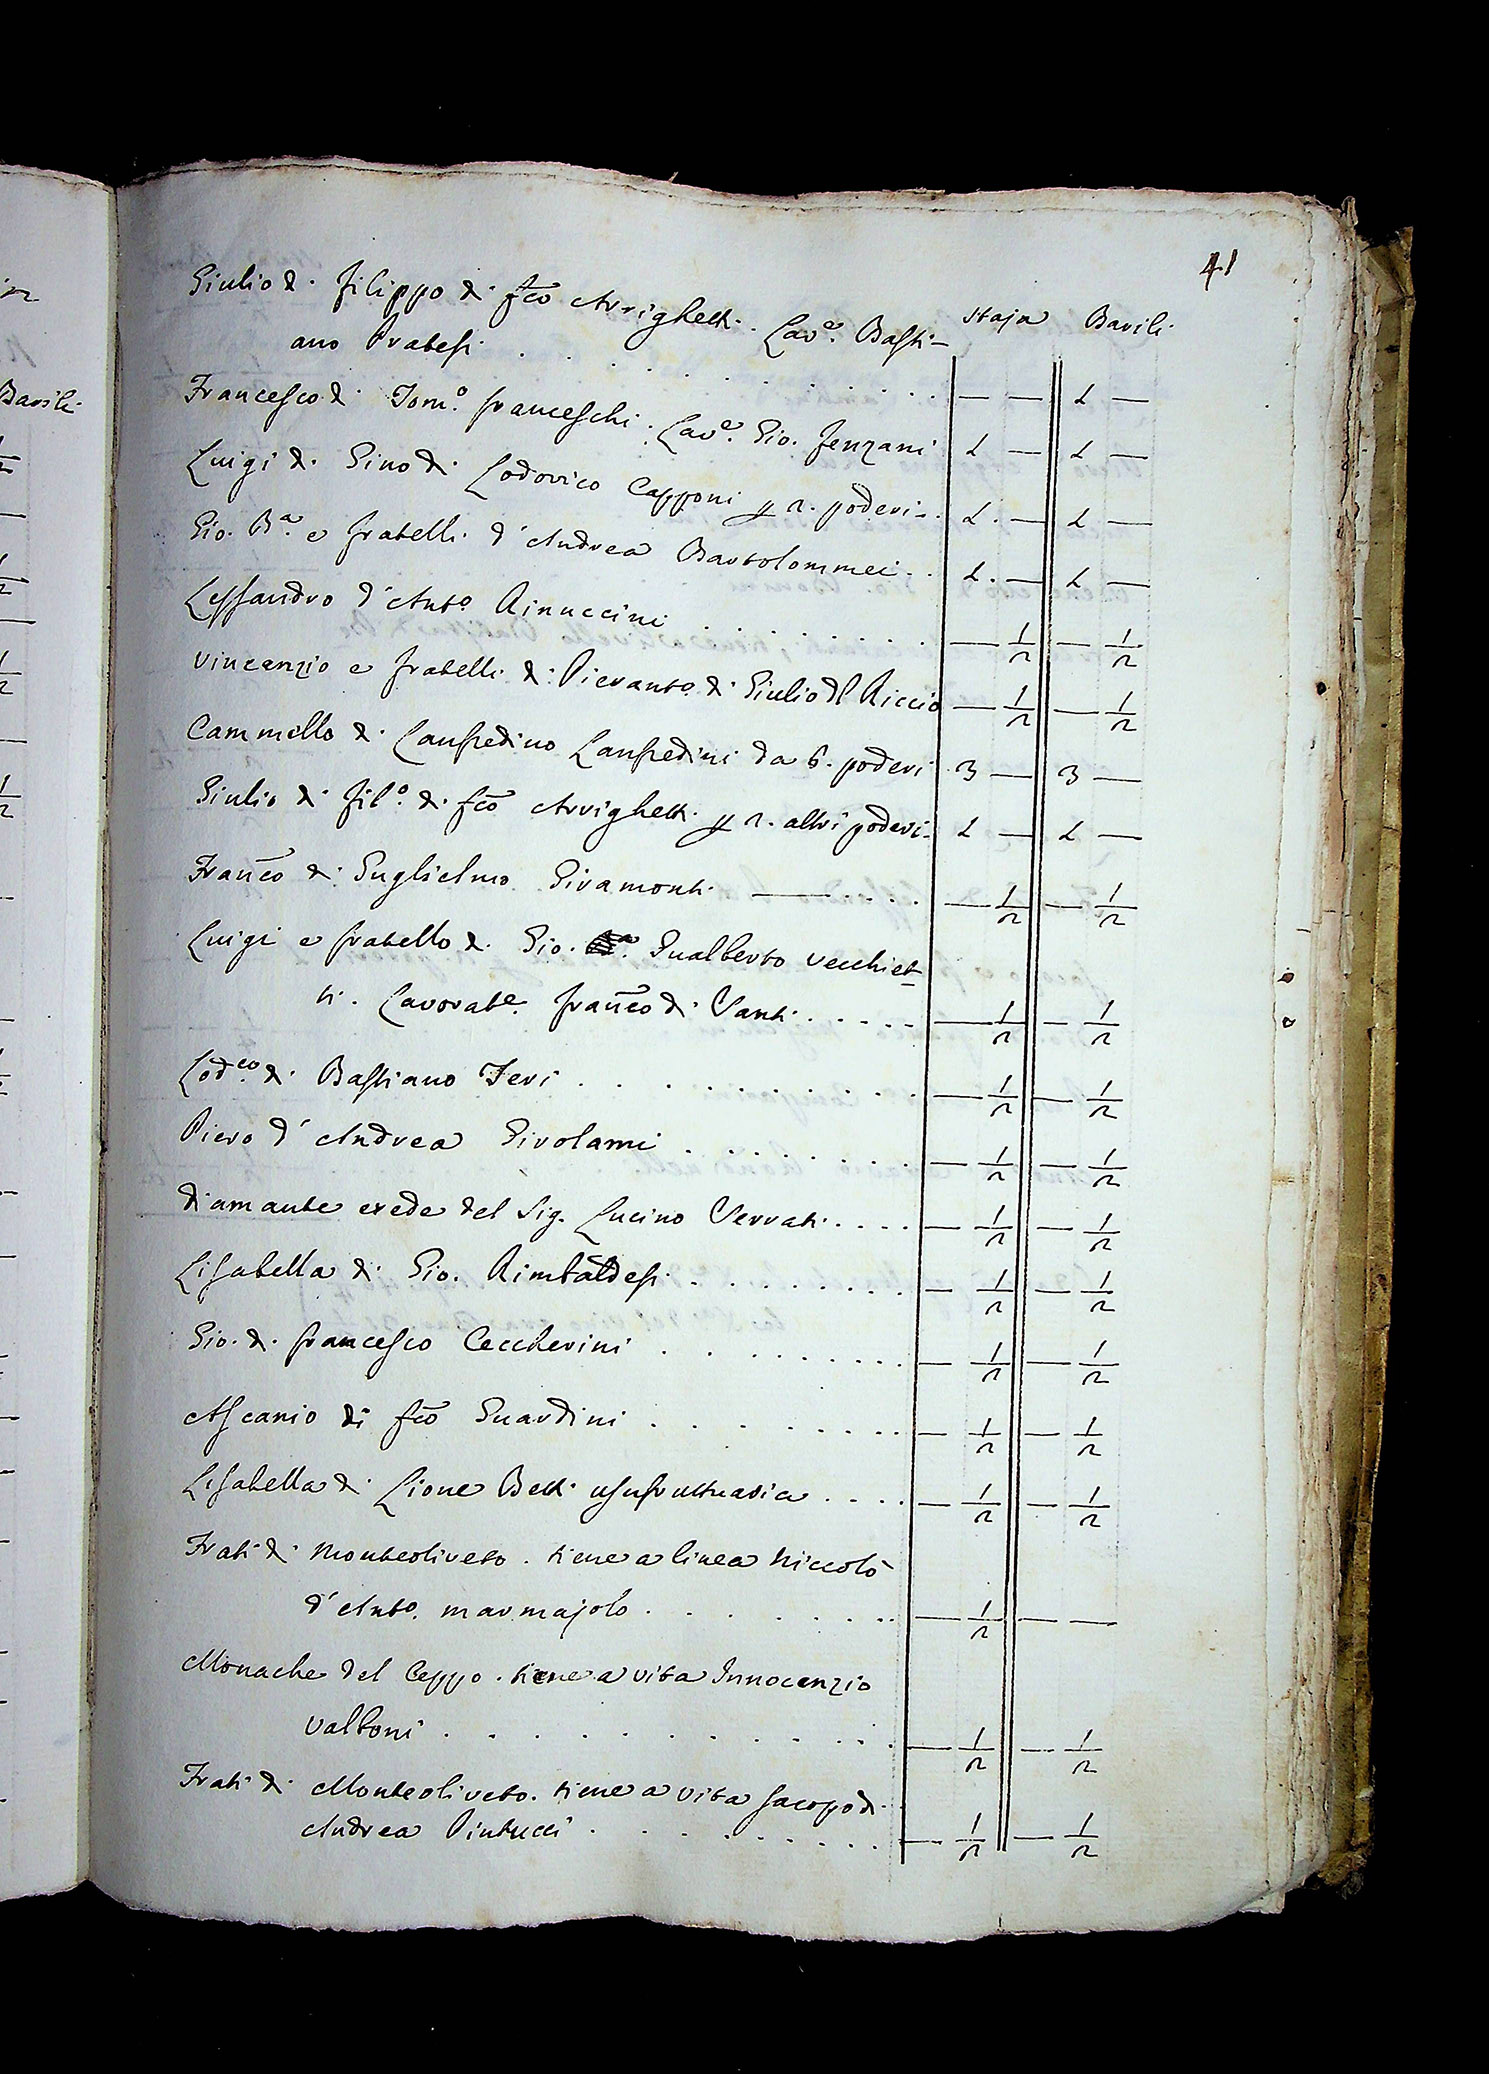 41
Staja Barili
Giulio di Filippo di Fco Arrighetti. Lave. Basti-
ano Pratesi . . . . — — 1 —
Francesco di Tomo. Franceschi. Lave. Gio. Fenzani 1 — 1 —
Luigi di Gino di Lodovico Capponi p 2. poderi.. 1. — 1 —
Gio. Ba. e fratelli d'Andrea Bartolommei.. 1. — 1 —
Lessandro d'Anto. Rinuccini . . . . — 1/2 — 1/2
Vincenzio e fratelli di Pieranto. di Giulio dl Riccio — 1/2 — 1/2
Cammillo di Lanfredino Lanfredini da 6. poderi 3 — 3 —
Giulio di Filo. di Fco Arrighetti. p 2. altri poderi. 1 — 1 —
Franco di Guglielmo Giramonti — . . . . — 1/2 — 1/2
Luigi e fratello di Gio. Gualberto Vecchiet-
ti. Lavorate. Franco di Santi . . . . — 1/2 — 1/2
Lodco. di Bastiano Teri . . . . — 1/2 — 1/2
Piero d'Andrea Girolami . . . . — 1/2 — 1/2
Diamante erede del Sig. Lucino Serrati . . . . — 1/2 — 1/2
Lisabella di Gio. Rimbaldesi . . . . — 1/2 — 1/2
Gio. di Francesco Ceccherini . . . . — 1/2 — 1/2
Ascanio di Fco Guardini . . . . — 1/2 — 1/2
Lisabella di Lione Betti usufruttuaria . . . . — 1/2 — 1/2
Frati di Monteoliveto. tiene a linea Niccolò
d'Anto. Marmajolo . . . . — 1/2 — —
Monache del Ceppo. tiene a vita Innocenzio
Valboni . . . . — 1/2 — 1/2
Frati di Monteoliveto. tiene a vita Jacopo di
Andrea Pintucci . . . . — 1/2 — 1/2
Barili